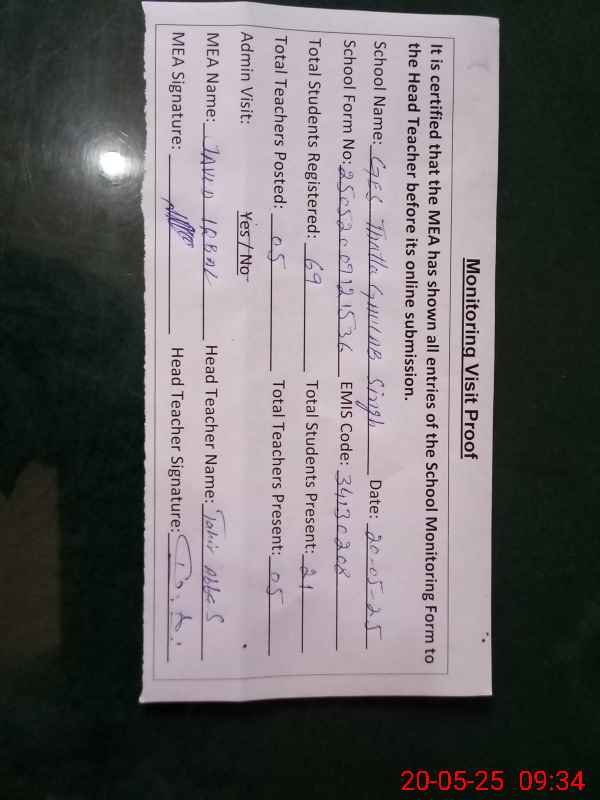 Monitoring Visit Proof
It is certified that the MEA has shown all entries of the School Monitoring Form to
the Head Teacher before its online submission.
School Name: GES Thatta GHULAB Singh Date: 20-05-25
School Form No: 25052009121536 EMIS Code: 34130208
Total Students Registered: 69 Total Students Present: 21
Total Teachers Posted: 05 Total Teachers Present: 05
Admin Visit: Yes / No
MEA Name: JAVED IQBAL Head Teacher Name: Tahir Abbas
MEA Signature: Head Teacher Signature:
20-05-25 09:34